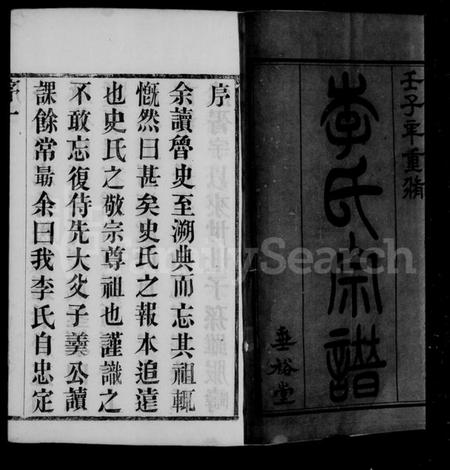 壬子年重脩
李氏宗譜
垂裕堂
序
余讀魯史至溯典而忘其祖輒
慨然曰甚矣史氏之報本追遠
也史氏之敬宗尊祖也謹識之
不敢忘復侍先大父子羹公讀
課餘常勗余曰我李氏自忠定
序一
FamilySearch